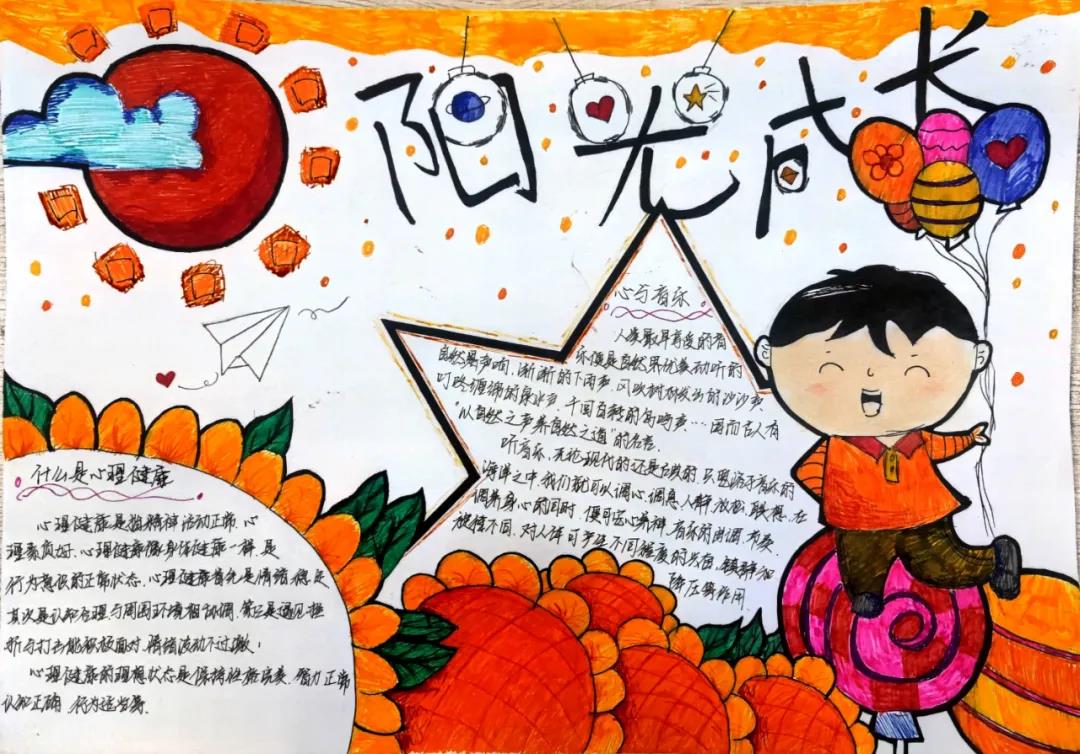 阳光成长
心与音乐
人类最早喜爱的音
乐便是自然界优美动听的
自然界声响,淅淅的下雨声,风吹树林发出的沙沙声,
叮咚缠绵的泉水声,千回百转的鸟鸣声…因而古人有
"以自然之声养自然之道"的名言
听音乐,无论现代的还是古典的,只要游于音乐的
海洋之中,我们就可以调心,调息,人静,放松,联想,在
调养身心的同时,便可去心养神,音乐的曲调,节奏,
旋律不同,对人体可产生不同程度的兴奋,镇静和
降压等作用.
什么是心理健康
心理健康是指精神活动正常,心
理素质好.心理健康像身体健康一样,是
行为意识的正常状态.心理健康首先是情绪稳定
其次是认知合理,与周围环境相协调,第三是遇见挫
折与打击能积极面对,情绪波动不过激!
心理健康的理想状态是保持性格完美、智力正常
认知正确,行为适当等.